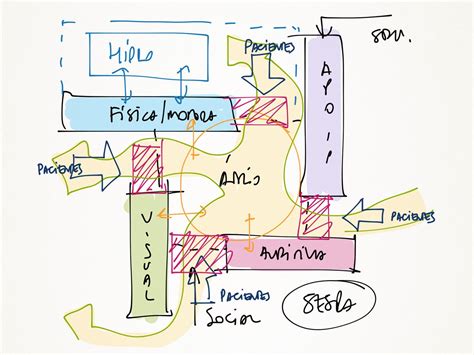 HIDRO
PACIENTES
SERV.
FÍSICA/MOTORA
APOIO
PACIENTES
ÁTRIO
PACIENTES
VISUAL
AUDITIVA
PACIENTES
SOCIAL